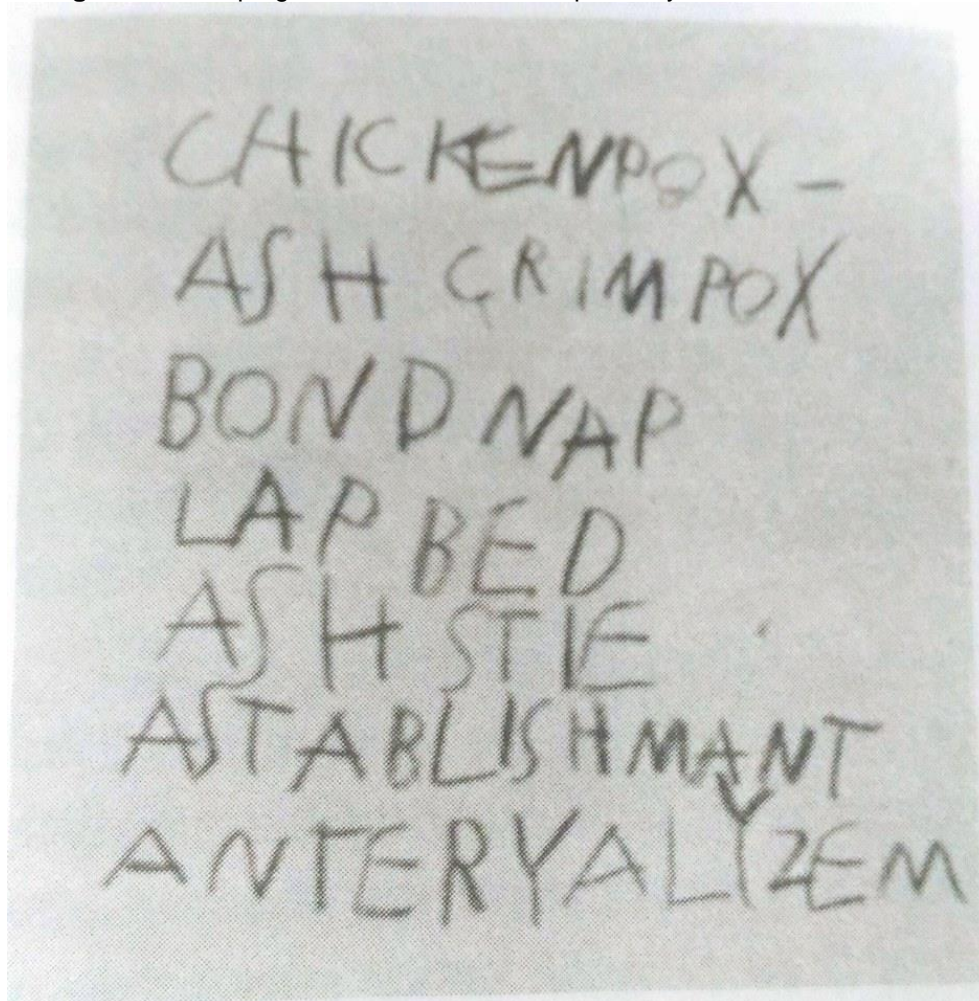 CHICKENPOX -
ASH CRIMPOX
BONDNAP
LAP BED
ASH STIE
ASTABLISHMANT
ANTERYALYZEM